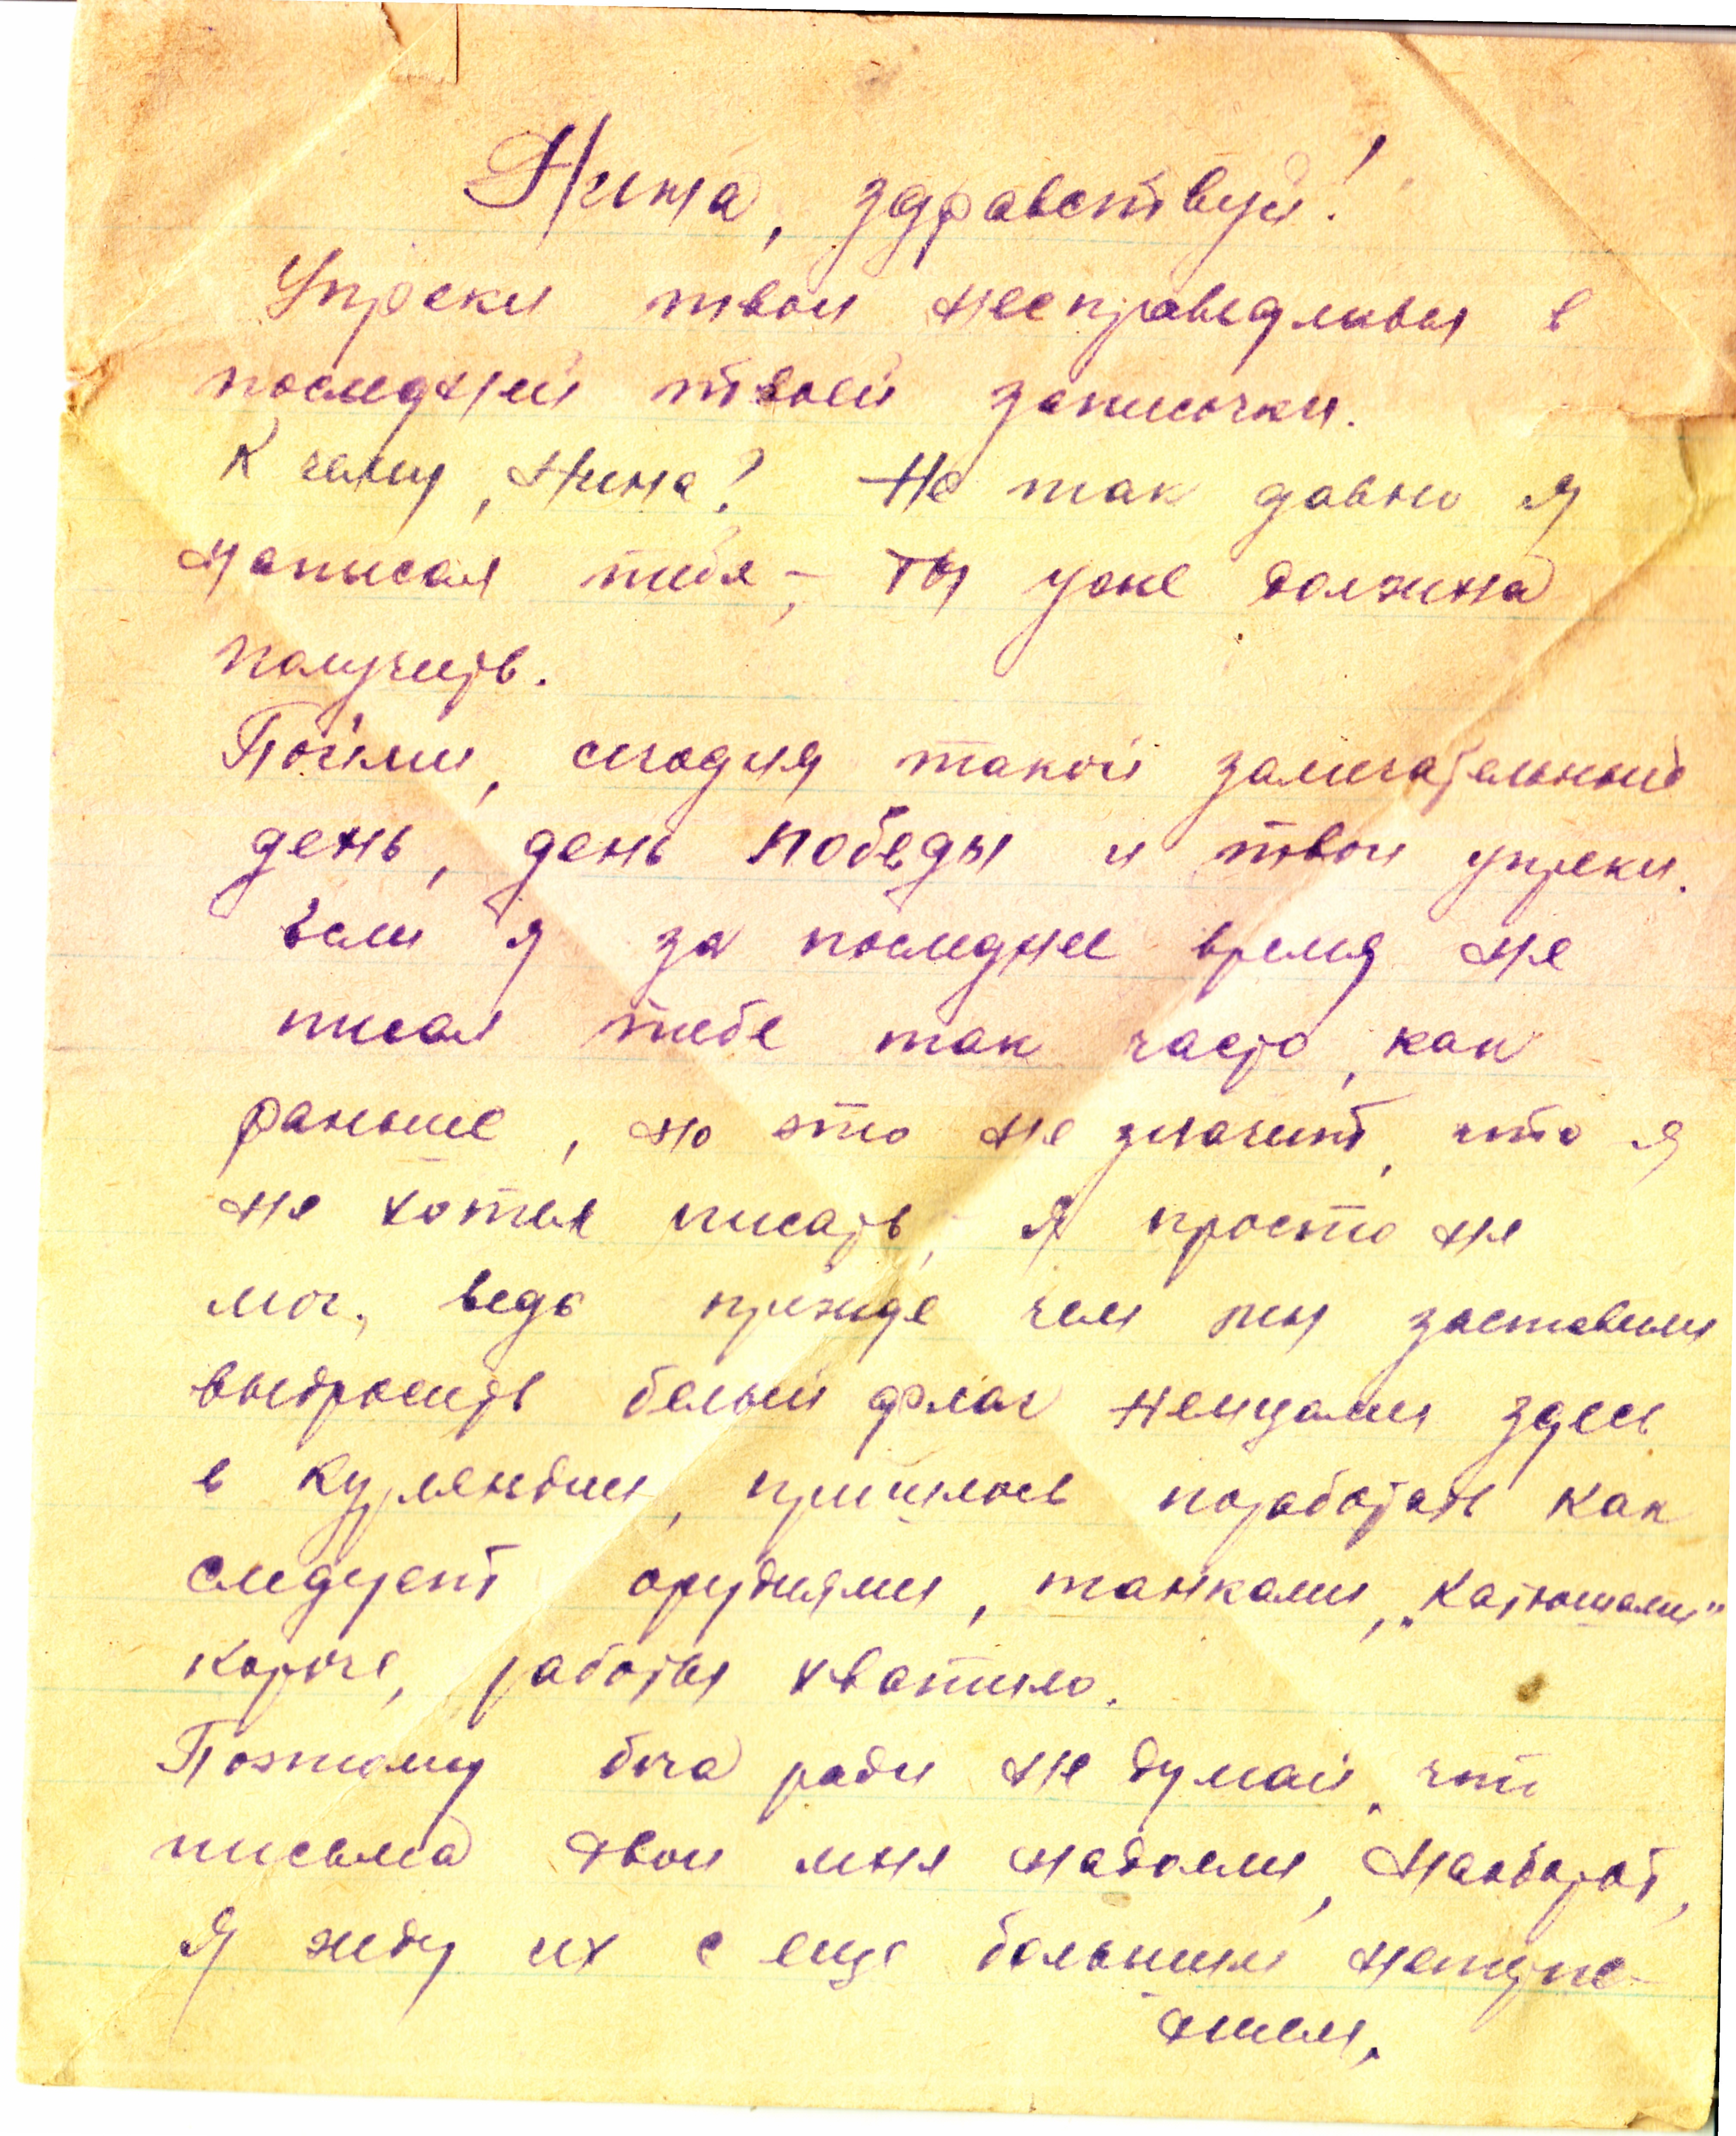 Нина, здравствуй!
Упреки твои несправедливы в
последней твоей записочки.
К чему, Нина? Не так давно я
написал тебе, – ты уже должна
получить.
Пойми, сегодня такой замечательный
день, день победы и твои упреки.
Если я за последнее время не
писал тебе так часто, как
раньше, но это не значит, что я
не хотел писать, я просто не
мог, ведь прежде чем мы заставили
выбросить белый флаг немцами здесь
в Курляндии, пришлось поработать как
следует орудиями, танками, „Катюшами"
короче, работы хватило.
Поэтому бога ради не думай, что
письма твои мня надоели, наоборот,
я жду их с еще большим нетерпе-
нием.